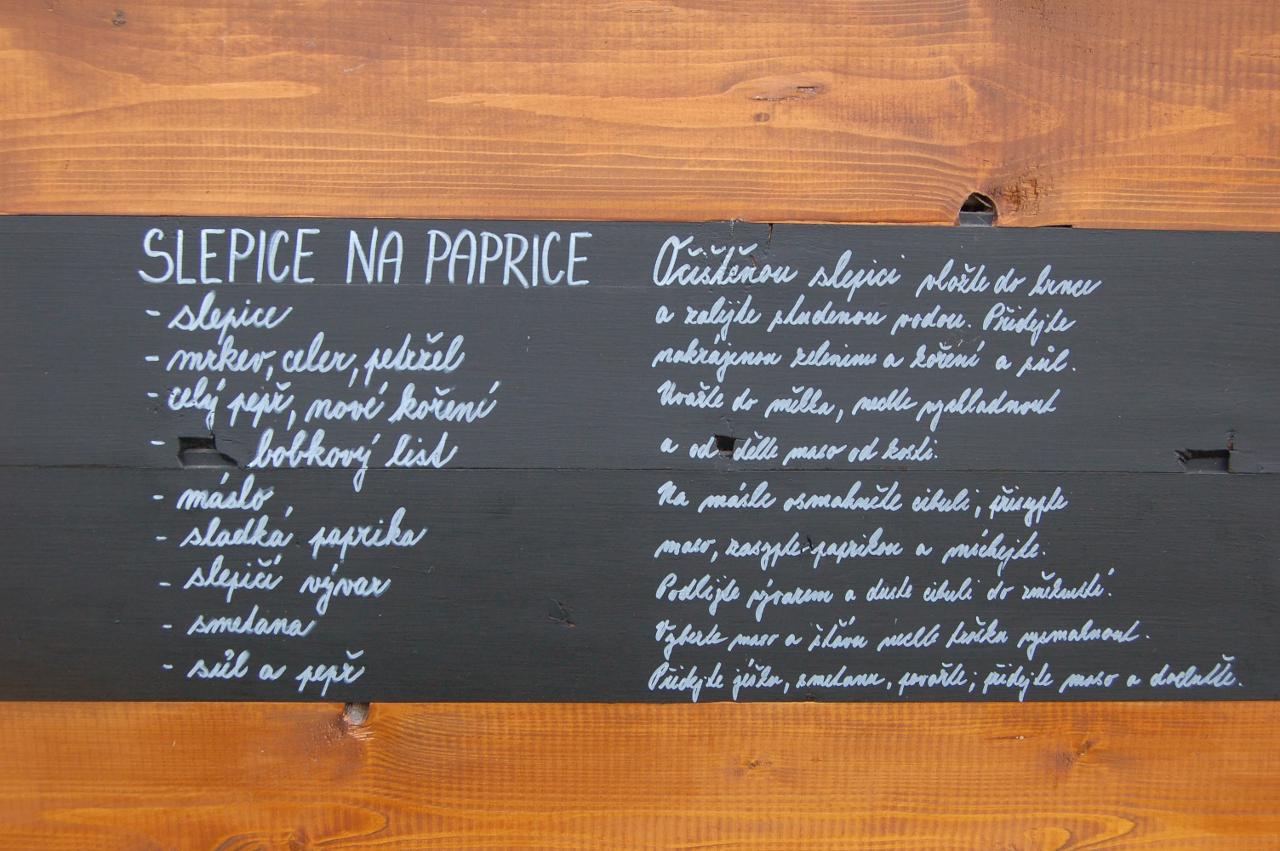 SLEPICE NA PAPRICE
- slepice
- mrkev, celer, petržel
- celý pepř, nové koření
- bobkový list
- máslo,
- sladká paprika
- slepičí vývar
- smetana
- sůl a pepř
Očištěnou slepici vložte do hrnce
a zalijte studenou vodou. Přidejte
nakrájenou zeleninu a koření a sůl.
Uvařte do měkka, nechte vychladnout
a oddělte maso od kosti.
Na másle osmahněte cibuli, přisypte
maso, zasypte paprikou a míchejte.
Podlijte vývarem a duste cibuli do změknutí.
Vyberte maso a šťávu nechte trošku vysmahnout.
Přidejte jíšku, smetanu, povařte, přidejte maso a doduste.